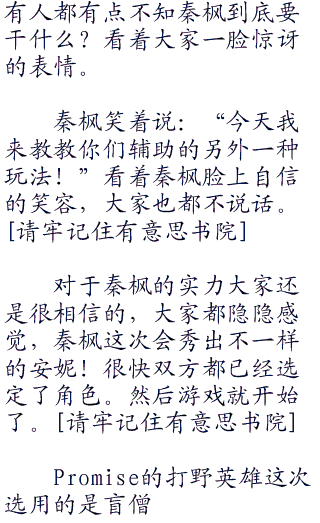 有人都有点不知秦枫到底要
干什么？看着大家一脸惊讶
的表情。
秦枫笑着说：“今天我
来教教你们辅助的另外一种
玩法！”看着秦枫脸上自信
的笑容，大家也都不说话。
[请牢记住有意思书院]
对于秦枫的实力大家还
是很相信的，大家都隐隐感
觉，秦枫这次会秀出不一样
的安妮！很快双方都已经选
定了角色。然后游戏就开始
了。[请牢记住有意思书院]
Promise的打野英雄这次
选用的是盲僧